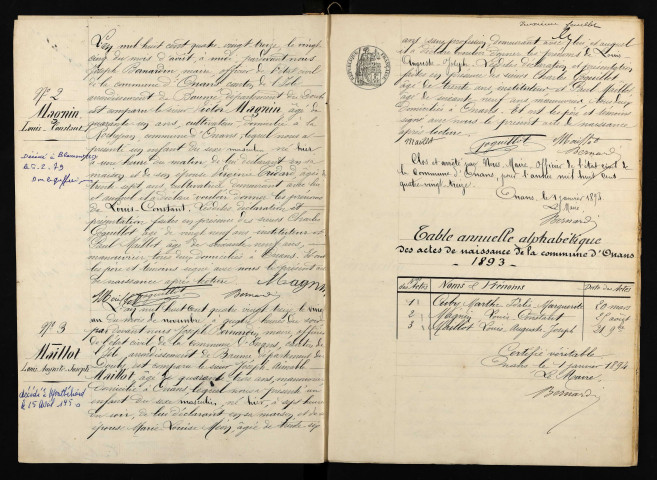 L'an mil huit cent quatre vingt treize le vingt
cinq du mois d'août à midi par devant nous
Joseph Bernardin maire officier de l'état civil
de la commune d'Onans canton de l'Isle
arrondissement de Baume département du Doubs
est comparu le sieur Victor Magnin âgé de
quarante un ans, cultivateur domicilié à la
commune d'Onans lequel nous a
présenté un enfant du sexe masculin né hier
à une heure du matin de lui déclarant en sa
maison et de son épouse
trente sept ans, cultivatrice demeurant avec lui
et auquel il a déclaré vouloir donner les prénoms
de Louis-Constant. Lesdites déclaration et
présentation faites en présence de sieurs Charles
Coquillot âgé de vingt neuf ans instituteur et
Paul Maillot âgé de soixante neuf ans,
manouvrier, tous deux domiciliés à Onans. Et ont
les père et témoins signé avec nous le présent acte
de naissance après lecture. Magnin
Maillot Coquillot Bernard
N° 2
Magnin
Louis Constant
Décédé à
le 5. 2. 59
L'an mil huit cent quatre vingt treize le vingt
un du mois de novembre à quatre heures du soir
par devant nous Joseph Bernardin, maire, officier
de l'état civil de la commune d'Onans, canton de
l'Isle, arrondissement de Baume, département du
Doubs est comparu le sieur Joseph, Aimable
Maillot, âgé de quarante trois ans, manouvrier
domicilié à Onans, lequel nous a présenté un
enfant du sexe masculin, né hier, à sept heures
du soir, de lui déclarant en sa maison et de son
épouse Marie Louise âgée de trente six
N° 3
Maillot
Louis Auguste Joseph
décédé à Montbéliard
le 15 Avril 1950
feuillet
ans sans profession demeurant avec lui et auquel
il a déclaré vouloir donner les prénoms de Louis
Auguste Joseph. Lesdites déclaration et présentation
faites en présence de sieurs Charles Coquillot
âgé de trente ans instituteur et Paul Maillot,
âgé de soixante neuf ans manouvrier, tous deux
domiciliés à Onans. Et ont les père et témoins
signé avec nous le présent acte de naissance
après lecture.
Maillot Coquillot Maillot
Bernard
Clos et arrêté par Nous Maire, Officier de l'état civil de
la Commune d'Onans, pour l'année mil huit cent
quatre-vingt treize.
Onans, le 1 janvier 1893
Le Maire
Bernard
Table annuelle alphabétique
des actes de naissance de la commune d'Onans
1893
Nos des Actes Noms et Prénoms Date des Actes
1 Marthe Marguerite 20 mars
2 Magnin Louis Constant 25 août
3 Maillot Louis, Auguste Joseph 21 9bre
Certifié véritable
Onans le 1 janvier 1894
Le Maire,
Bernard